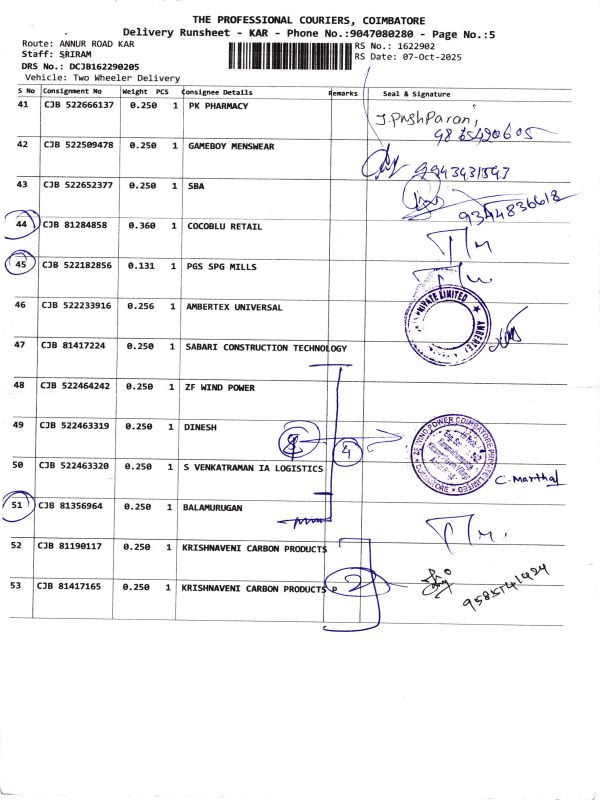 THE PROFESSIONAL COURIERS, COIMBATORE
Delivery Runsheet - KAR - Phone No.:9047080280 - Page No.:5
Route: ANNUR ROAD KAR
RS No.: 1622902
Staff: SRIRAM
RS Date: 07-Oct-2025
DRS No.: DCJB162290205
Vehicle: Two Wheeler Delivery
S No Consignment No Weight PCS Consignee Details Remarks Seal & Signature
41 CJB 522666137 0.250 1 PK PHARMACY
J.PushParani,
9815420605
42 CJB 522509478 0.250 1 GAMEBOY MENSWEAR
9943431593
43 CJB 522652377 0.250 1 SBA
9344836618
44 CJB 81284858 0.360 1 COCOBLU RETAIL
45 CJB 522182856 0.131 1 PGS SPG MILLS
46 CJB 522233916 0.256 1 AMBERTEX UNIVERSAL
PRIVATE LIMITED
47 CJB 81417224 0.250 1 SABARI CONSTRUCTION TECHNOLOGY
48 CJB 522464242 0.250 1 ZF WIND POWER
49 CJB 522463319 0.250 1 DINESH
4
ZF WIND POWER COIMBATORE PRIVATE LIMITED
50 CJB 522463320 0.250 1 S VENKATRAMAN IA LOGISTICS
C. Marthal
51 CJB 81356964 0.250 1 BALAMURUGAN
52 CJB 81190117 0.250 1 KRISHNAVENI CARBON PRODUCTS
53 CJB 81417165 0.250 1 KRISHNAVENI CARBON PRODUCTS P
2
9585141424